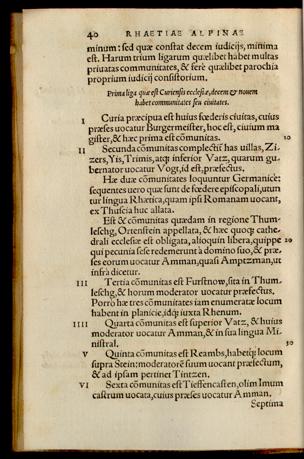 40 RHAETIAE ALPINAE
minum: sed quæ constat decem iudicijs, minima
est. Harum trium ligarum quælibet habet multas
priuatas communitates, & ferè quælibet parochia
proprium iudicij consistorium.
Prima liga quæ est Curiensis ecclesiæ, decem & nouem
habet communitates seu ciuitates.
I Curia præcipua est huius fœderis ciuitas, cuius
præses uocatur Burgermeister, hoc est, ciuium ma
gister, & hæc prima est cõmunitas. 10
II Secunda cõmunitas complectit has uillas, Zi
zers, Yis, Trimis, atq; inferior Vatz, quarum gu-
bernator uocatur Vogt, id est, præfectus.
Hæ duæ cõmunitates loquuntur Germanicè:
sequentes uero quæ sunt de fœdere episcopali, utun
tur lingua Rhætica, quam ipsi Romanam uocant,
ex Thuscia huc allata.
Est & cõmunitas quædam in regione Thum-
leschg, Ortenstein appellata, & hæc quoq; cathe-
drali ecclesiæ est obligata, alioquin libera, quippe 20
qui pecunia sese redemerunt à domino suo, & præ-
ses eorum uocatur Amman, quasi Amptzman, ut
infrà dicetur.
III Tertia cõmunitas est Furstnow, sita in Thum-
leschg, & horum moderator uocatur præfectus.
Porrò hæ tres cõmunitates iam enumeratæ locum
habent in planicie, idq; iuxta Rhenum.
IIII Quarta cõmunitas est superior Vatz, & huius
moderator uocatur Amman, & in sua lingua Mi-
nistral. 30
V Quinta cõmunitas est Reambs, habetq; locum
supra Stein: moderatorẽ suum uocant præfectum,
& ad ipsam pertinet Tintzen.
VI Sexta cõmunitas est Tieffencasten, olim Imum
castrum uocata, cuius præses uocatur Amman.
Septima